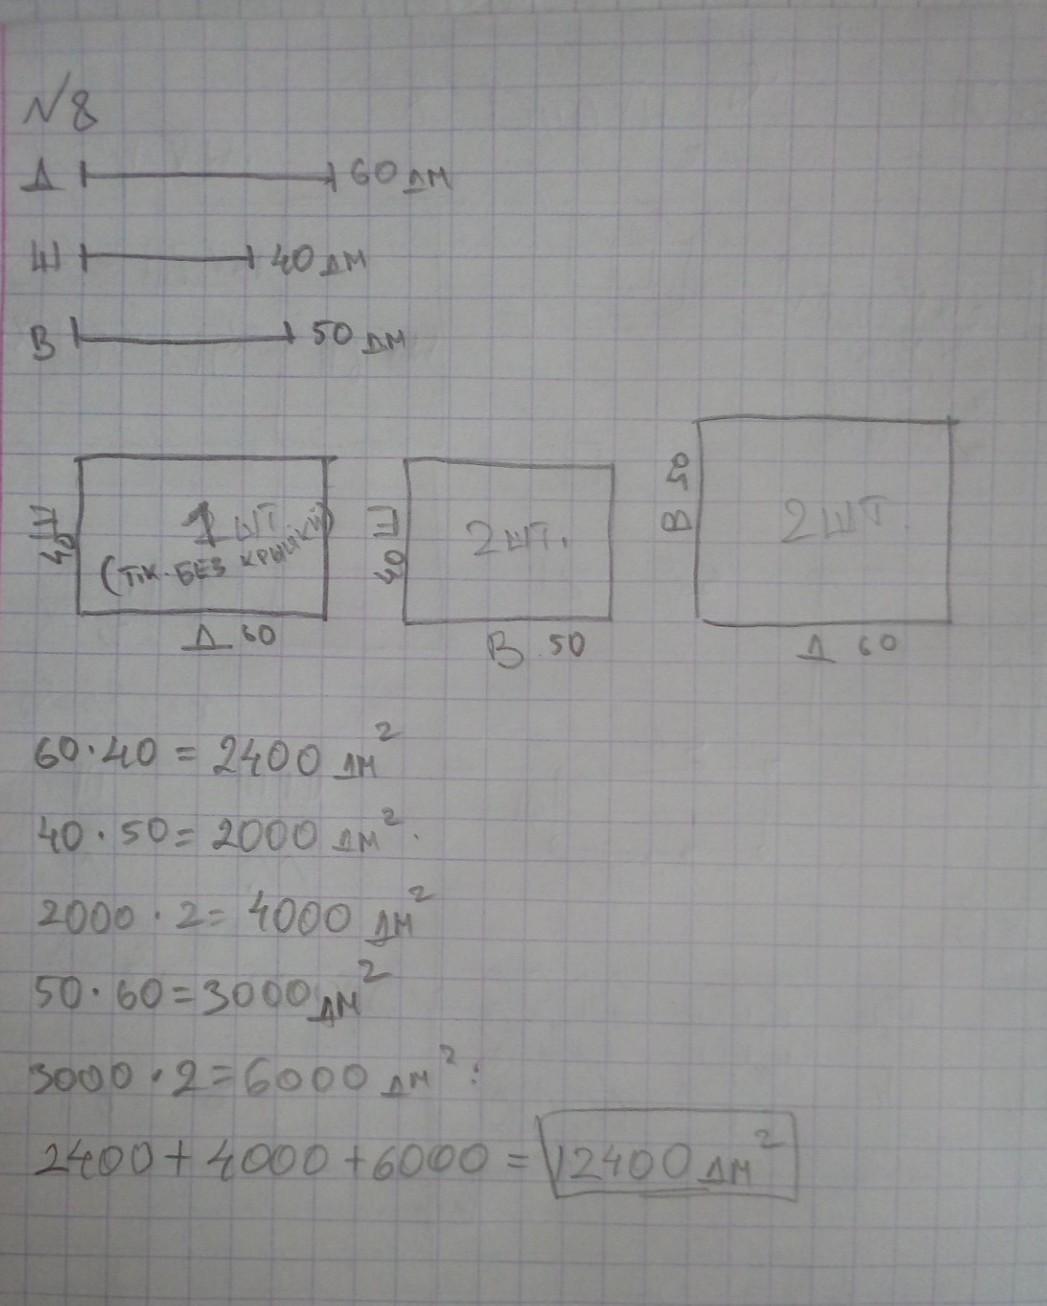 №8
Д 60 дм
Ш 40 дм
В 50 дм
Ш 40
1 шт
(т.к. БЕЗ крышки)
Д 60
Ш 40
2 шт.
В 50
В 50
2 шт.
Д 60
60·40 = 2400 дм²
40·50 = 2000 дм².
2000·2 = 4000 дм²
50·60 = 3000 дм²
3000·2 = 6000 дм²:
2400 + 4000 + 6000 = 12400 дм²